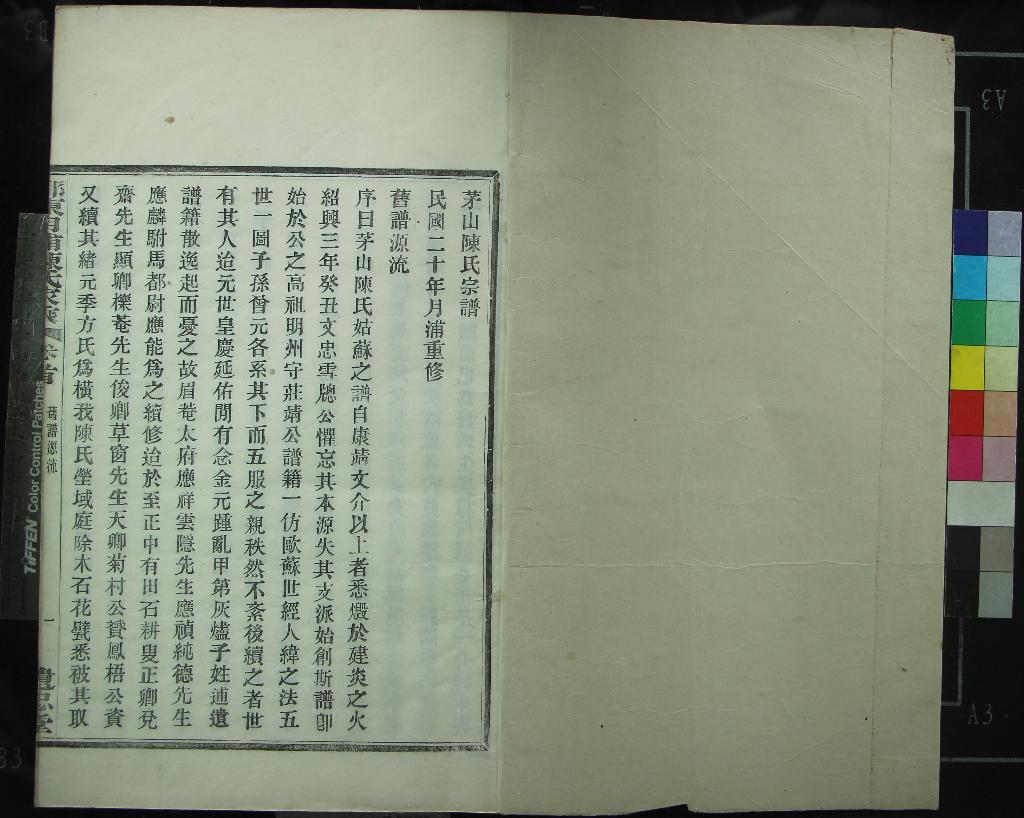 茅山陳氏宗譜
民國二十年月浦重修
舊譜源流
序曰茅山陳氏姑蘇之譜自康靖文介以上者悉燬於建炎之火
紹興三年癸丑文忠雪牕公懼忘其本源失其支派始創斯譜卽
始於公之高祖明州守莊靖公譜籍一仿歐蘇世經人緯之法五
世一圖子孫曾元各系其下而五服之親秩然不紊後續之者世
有其人迨元世皇慶延佑閒有念金元踵亂甲第灰燼子姓逋遺
譜籍散逸起而憂之故眉菴太府應祥雲隱先生應禎純德先生
應麟駙馬都尉應能爲之續修迨於至正中有田石耕叟正卿兌
齋先生顯卿櫟菴先生俊卿草窗先生天卿菊村公贊鳳梧公資
又續其緒元季方氏爲橫我陳氏塋域庭除木石花甓悉被其取
舊譜源流
一
TIFFEN Color Control Patches
A3
A3
B3
B3